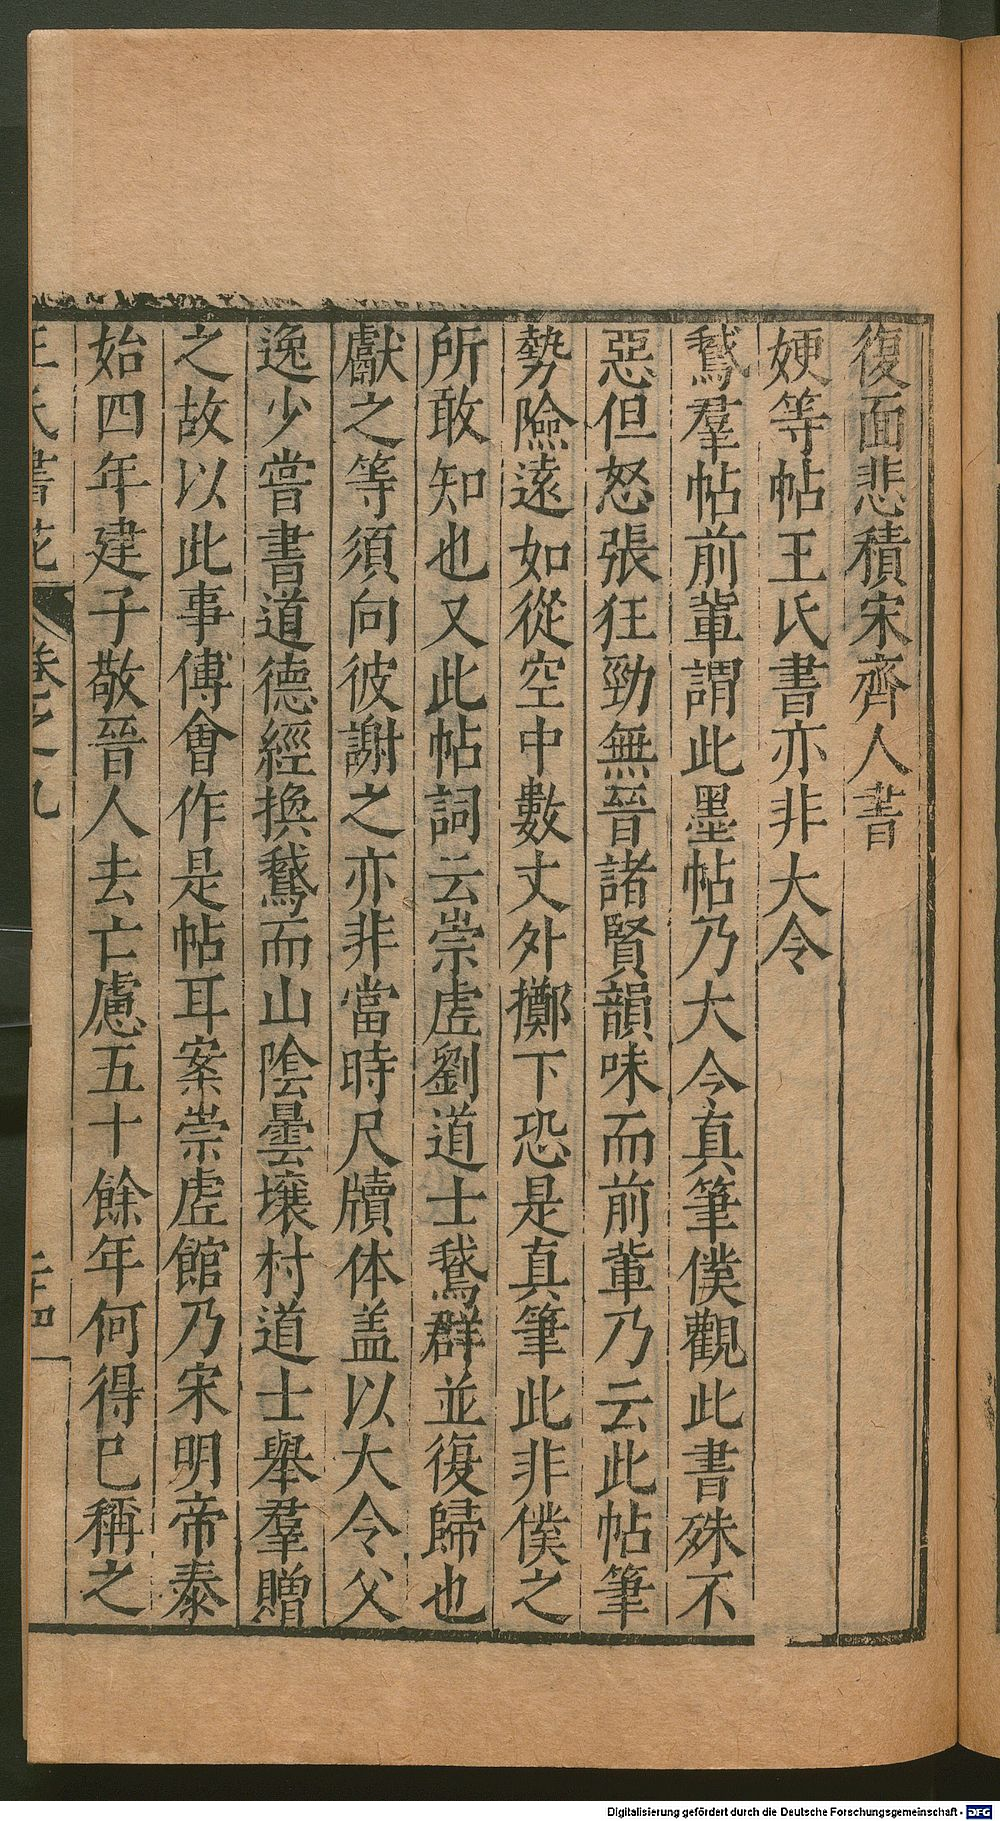 復面悲積宋齊人書
㛐等帖王氏書亦非大令
鵞羣帖前輩謂此墨帖乃大令真筆僕觀此書殊不
惡但怒張狂勁無晉諸賢韻味而前輩乃云此帖筆
勢險遠如從空中數丈外擲下恐是真筆此非僕之
所敢知也又此帖詞云崇虛劉道士鵞群並復歸也
獻之等須向彼謝之亦非當時尺牘体盖以大令父
逸少嘗書道德經換鵞而山陰曇壤村道士舉羣贈
之故以此事傅會作是帖耳案崇虛館乃宋明帝泰
始四年建子敬晉人去亡慮五十餘年何得已稱之
王氏書苑 卷之九 二十四
Digitalisierung gefördert durch die Deutsche Forschungsgemeinschaft - DFG